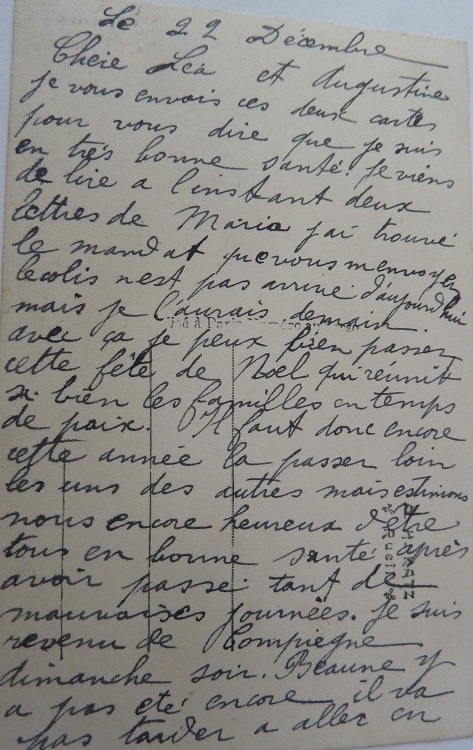 Le 22 Décembre
Cheie Léa et Augustine
je vous envois ces deux cartes
pour vous dire que je suis
en très bonne santé. Je viens
de lire a l'instant deux
lettres de Maria j'ai trouvé
le mandat que vous m'envoyer
le colis n'est pas arrivé d'aujourd'hui
mais je l'aurais demain.
avec ça je peux bien passer
cette fête de Noel qui réunit
si bien les familles en temps
de paix. Il faut donc encore
cette année la passer loin
les uns des autres mais estimons
nous encore heureux d'être
tous en bonne santé après
avoir passé tant de
mauvaises journées. Je suis
revenu de Compiegne
dimanche soir. Beaune y
a pas été encore il va
pas tarder a aller en